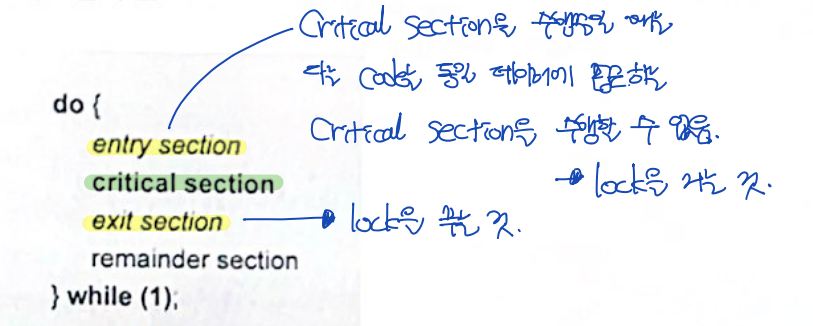 Critical section을 수행중일 때는
다른 code는 동일 데이터에 접근하는
do {
entry section
Critical section을 수행할 수 없음.
critical section
→ lock을 거는 것.
exit section → lock을 푸는 것.
remainder section
} while (1);